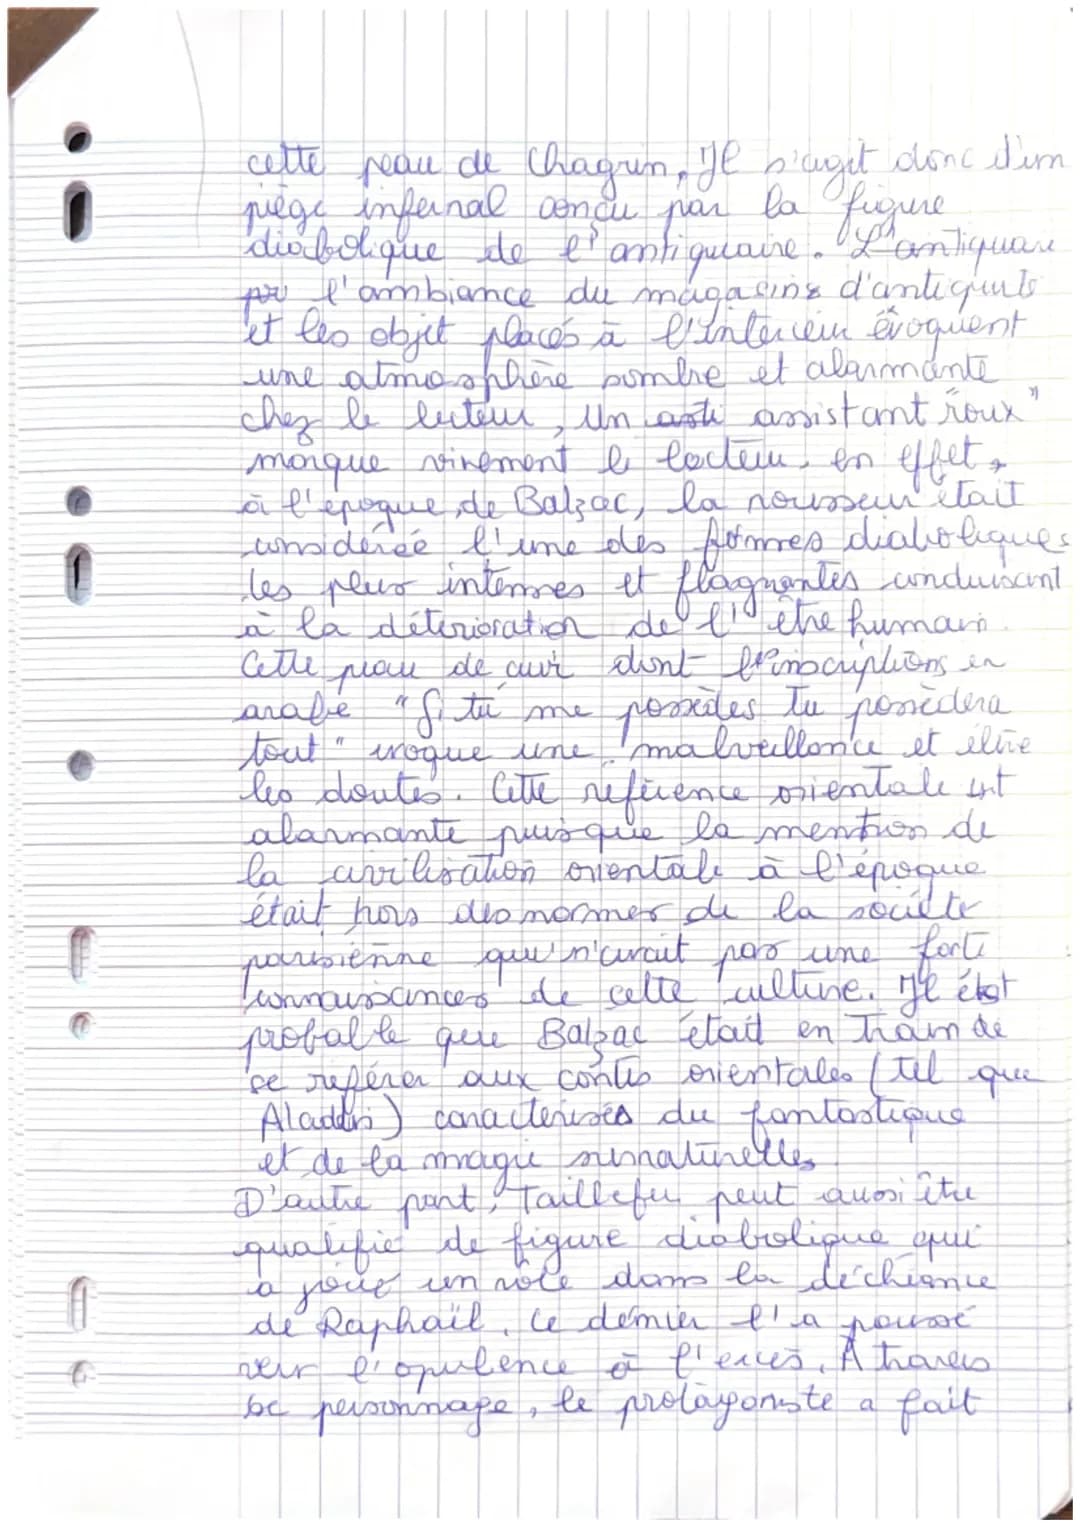 cette peau de Chagrin. Il s'agit donc d'un
piège infernal conçu par la figure
diabolique de l'antiquaire. L'antiquaire
par l'ambiance du magasins d'antiquité
et les objet placés à l'intérieur évoquent
une atmosphère sombre et alarmante
chez le lecteur, Un assistant "roux"
marque vivement le lecteur. en effet,
à l'époque de Balzac, la rousseur était
considérée l'une des formes diaboliques
les plus intenses et flagrantes conduisant
à la détérioration de l'être humain.
Cette peau de cuir dont l'inscriptions en
arabe "Si tu me possèdes Tu possèdera
tout" évoque une malveillance et
les doutes. Cette référence orientale est
alarmante puisque la mention de
la civilisation orientale à l'époque
était hors des normes de la société
parisienne qui n'avait pas une forte
connaissances de cette culture. Il était
probable que Balzac était en train de
se référer aux contes orientales (tel que
Aladdin) caractérisés du fantastique
et de la magie surnaturelles
D'autre part, Taillefer peut aussi être
qualifié de figure diabolique qui
a joué un rôle dans la déchéance
de Raphaël. Ce dernier l'a poussé
vers l'opulence à l'excès. A travers
ce personnage, le protagoniste a fait